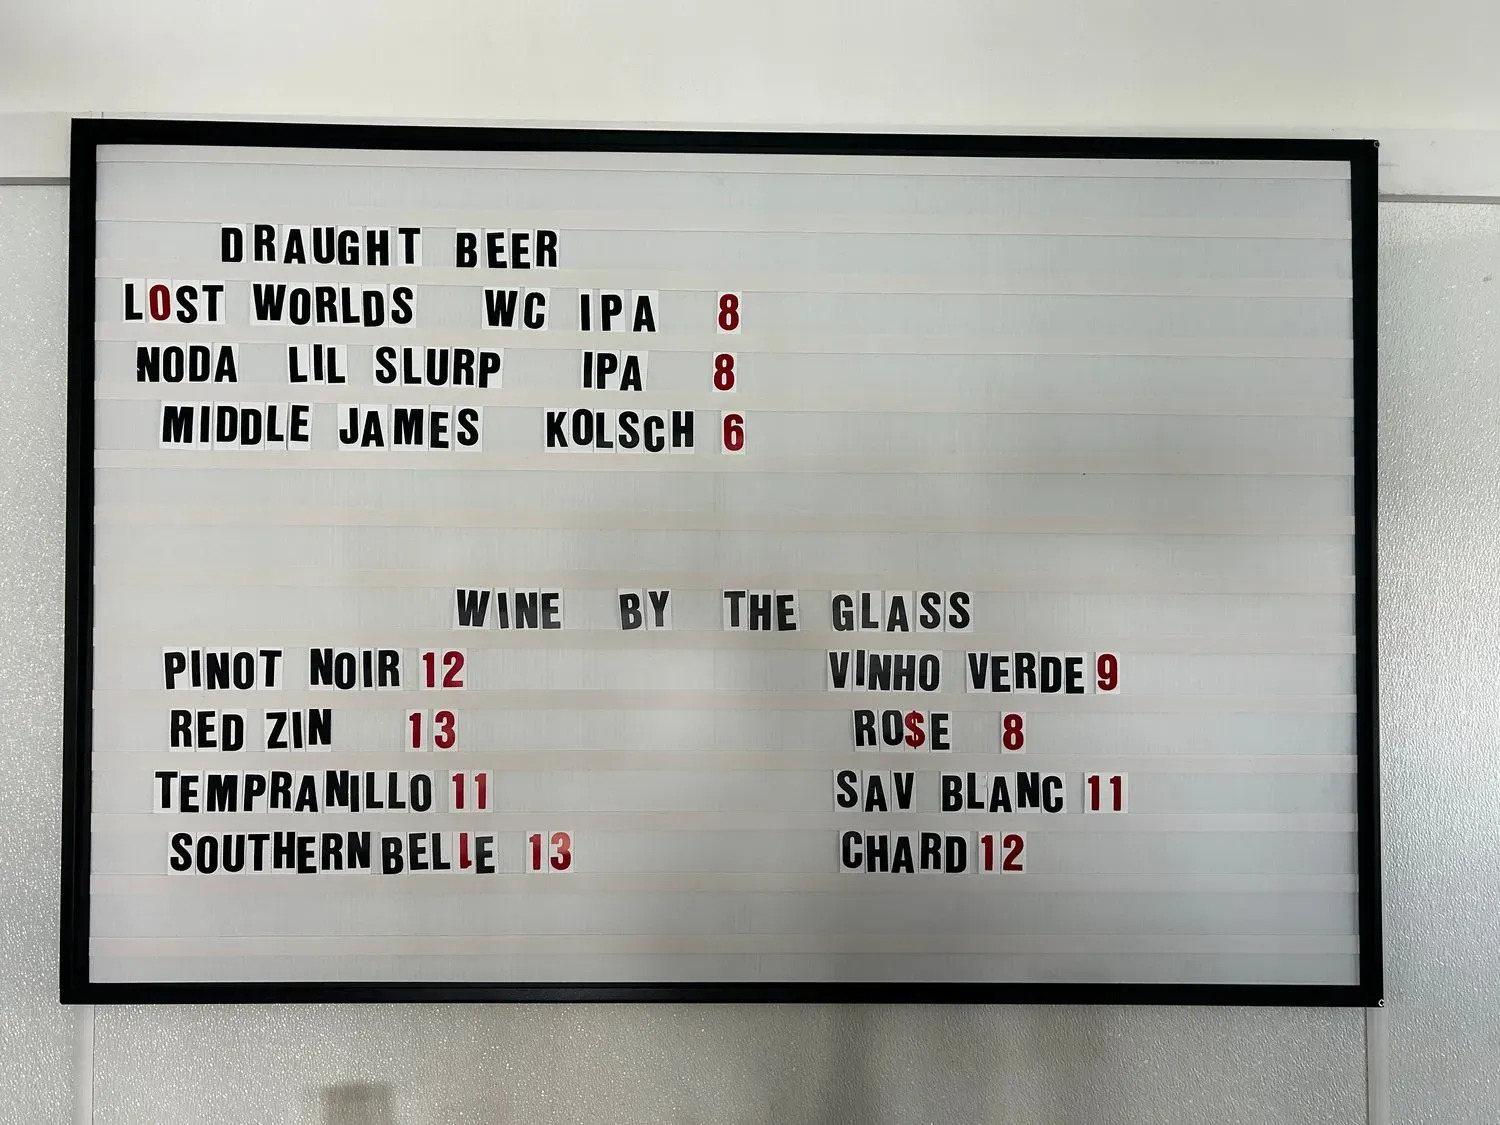 DRAUGHT BEER
LOST WORLDS WC IPA 8
NODA LIL SLURP IPA 8
MIDDLE JAMES KOLSCH 6
WINE BY THE GLASS
PINOT NOIR 12
RED ZIN 13
TEMPRANILLO 11
SOUTHERN BELLE 13
VINHO VERDE 9
RO$E 8
SAV BLANC 11
CHARD 12